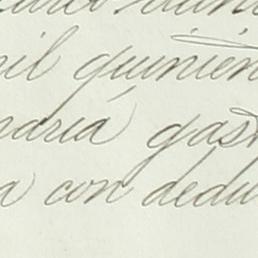 mil quinien
naria gast
a con dedu